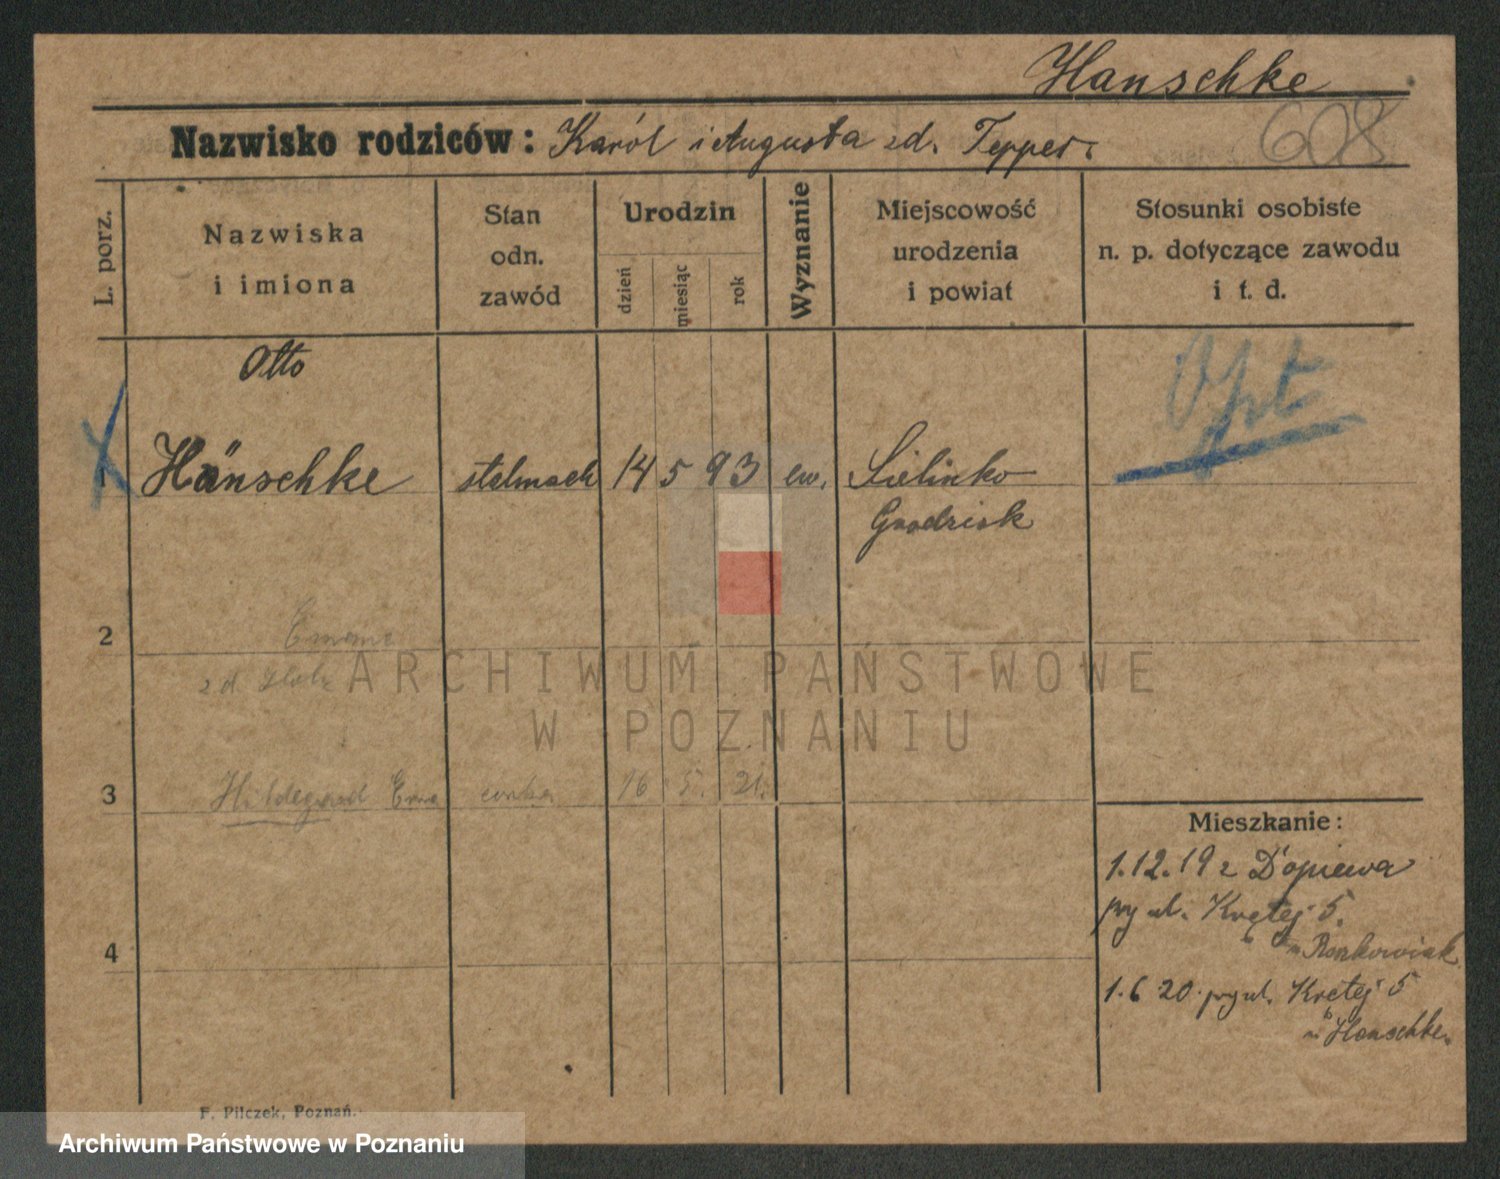 Hanschke
Nazwisko rodziców: Karól i Augusta zd. Tepper.
608
L. porz.
Nazwiska
i imiona
Stan
odn.
zawód
Urodzin
dzień
miesiąc
rok
Wyznanie
Miejscowość
urodzenia
i powiat
Stosunki osobiste
n. p. dotyczące zawodu
i t. d.
Otto
1 Hänschke stelmach 14 5 93 ew. Sielinko
Grodzisk
Opt
2
zd.
ARCHIWUM PAŃSTWOWE
W POZNANIU
3 Hildegard Erna córka 16 5. 21.
4
Mieszkanie:
1.12.19 z Dopiewa
py ul. Krętej 5.
1.6 20 py ul. Krętej 5
Hanschke
F. Pilczek, Poznań.
Archiwum Państwowe w Poznaniu